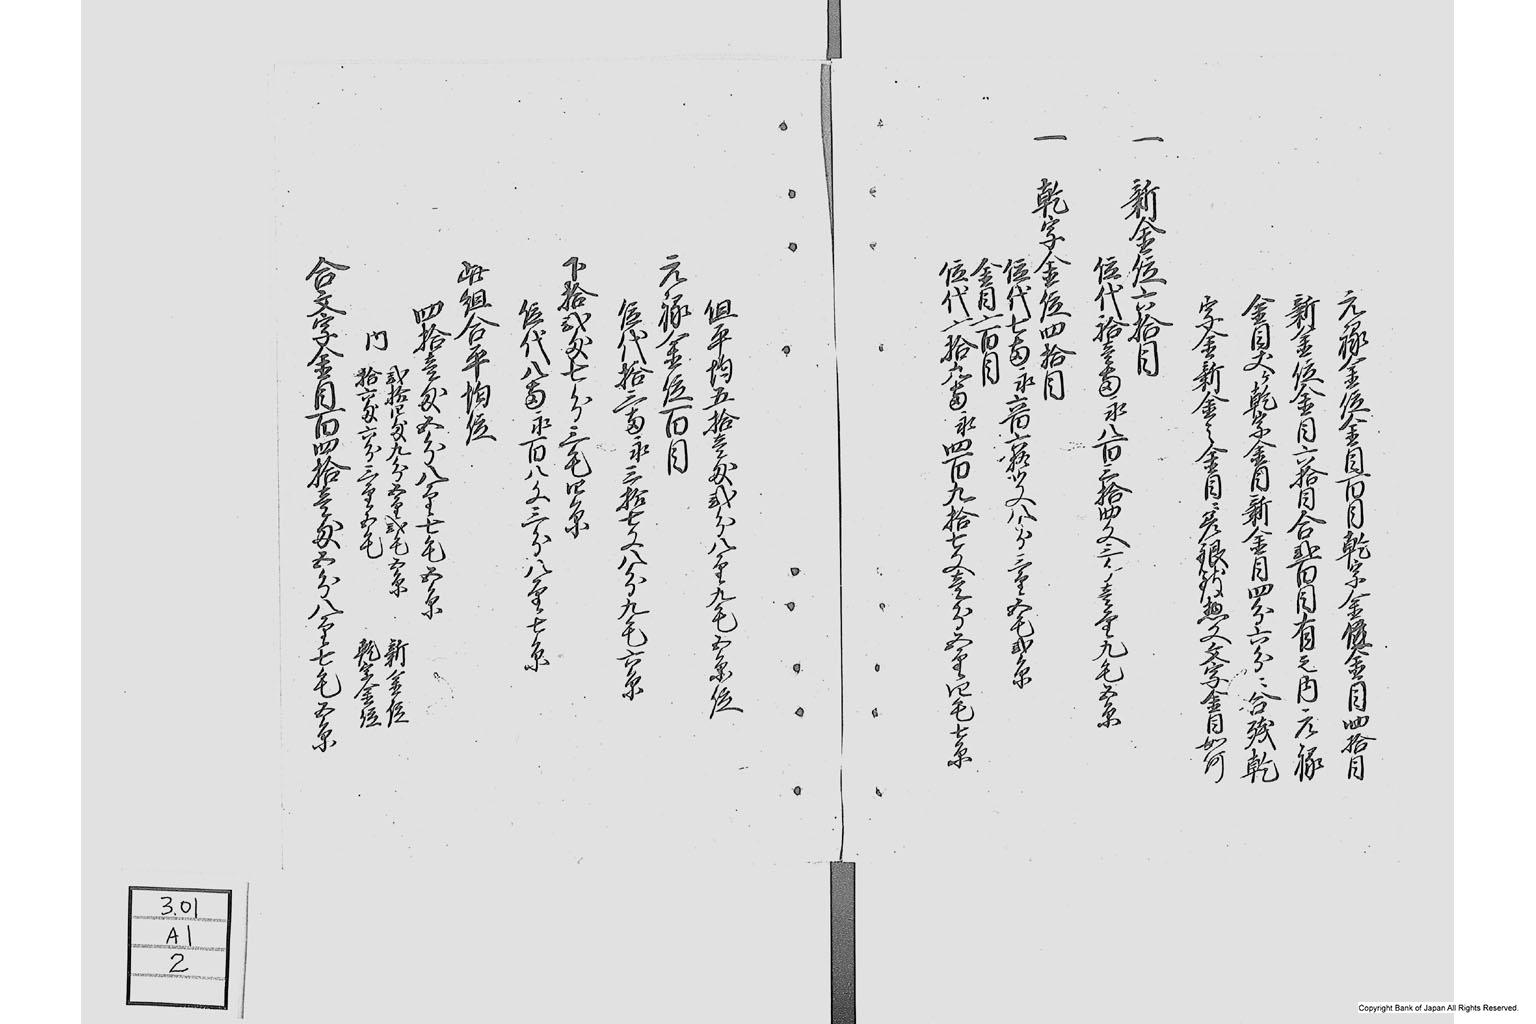 元禄金位金目百目乾字金位金目四拾目
新金位金目六拾目合弐百目有之内元禄
金目乾字金目新金目四分六分ニ合残乾
字金新金之金目ニ差銀鋳惣文字金目如何
一 新金位六拾目
位代拾壱両永八百三拾四文三分壱厘九毛五糸
一 乾字金位四拾目
位代七両永文八分三厘五毛弐糸
金目二百目
位代六拾九両永四百九拾七文壱分五厘四毛七糸
但平均五拾壱匁弐分八厘九毛五糸位
元禄金位百目
位代拾三両永三拾七文八分九毛六糸
下拾弐匁七分三毛四糸
位代八両永百八文三分八厘七糸
此組合平均位
四拾壱匁五分八厘七毛五糸
内 弐拾四匁九分五厘弐毛五糸 新金位
拾六匁六分三厘五毛 乾字金位
合文字金目百四拾壱匁五分八厘七毛五糸
3.01
A1
2
Copyright Bank of Japan All Rights Reserved.